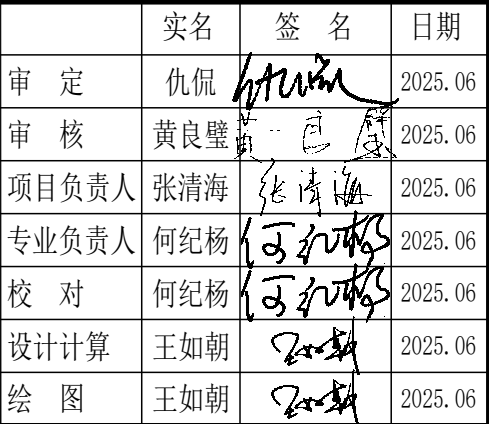 实名 签 名 日期
审 定 仇侃 仇侃 2025.06
审 核 黄良璧 黄良璧 2025.06
项目负责人 张清海 张清海 2025.06
专业负责人 何纪杨 何纪杨 2025.06
校 对 何纪杨 何纪杨 2025.06
设计计算 王如朝 王如朝 2025.06
绘 图 王如朝 王如朝 2025.06